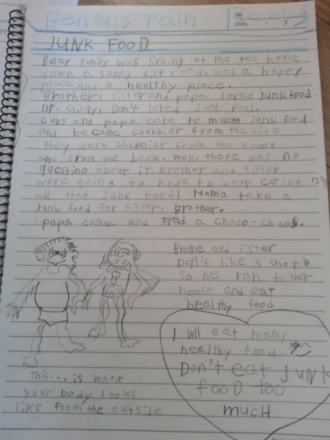 JUNK FOOD
Bear family was living at the tee house
down a sunny dirt road. was a happy
place and a healthy place.
Brother, sister and papa loved junk food.
Dr. Don't eat junk food.
cubs and papa eate to much junk food
and became chubbier from the side
they were chubbier from the front
from the back. Well, there was no
about it. brother and sister
were going to have to stop eating
all that junk food! Mama take a
junk food for sister, brother.
papa came and a choco-chums.
and sister
don't like a shots
so he ran to ther
house and eat
healthy food
This... is what
your body looks
like from the outside
I will eat many
healthy food.
Don't eat junk
food too
much